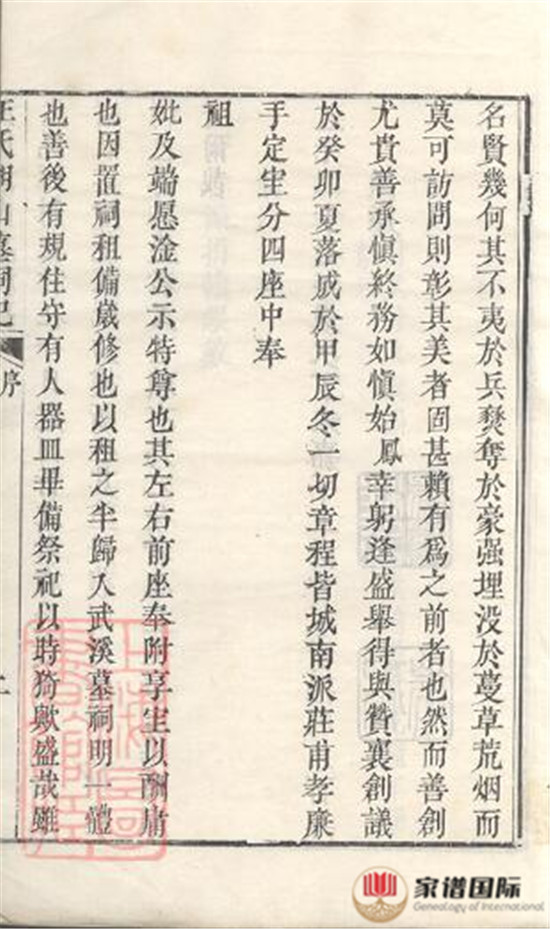 名賢幾何其不夷於兵燹奪於豪强埋没於蔓草荒烟而
莫可訪問則彰其美者固甚賴有爲之前者也然而善創
尤貴善承愼終務如愼始鳳幸躬逢盛舉得與贊襄創議
於癸卯夏落成於甲辰冬一切章程皆城南派莊甫孝廉
手定龛分四座中奉
祖
妣及端愿淦公示特尊也其左右前座奉附享龛以酬庸
也因置祠租備歲修也以租之半歸入武溪墓祠明一體
也善後有規住守有人器皿畢備祭祀以時猗歟盛哉雖
汪氏湖山墓祠記
序
二
家谱国际
Genealogy of International